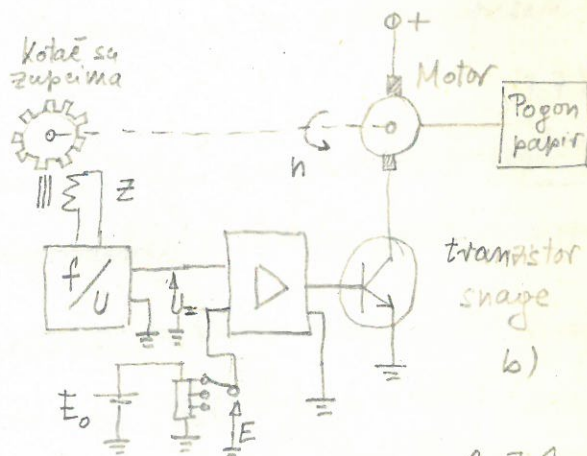 Kotač sa
zupcima
+
Motor
Pogon
papir
n
Z
f/U
U=
tranzistor
snage
b)
E₀
E